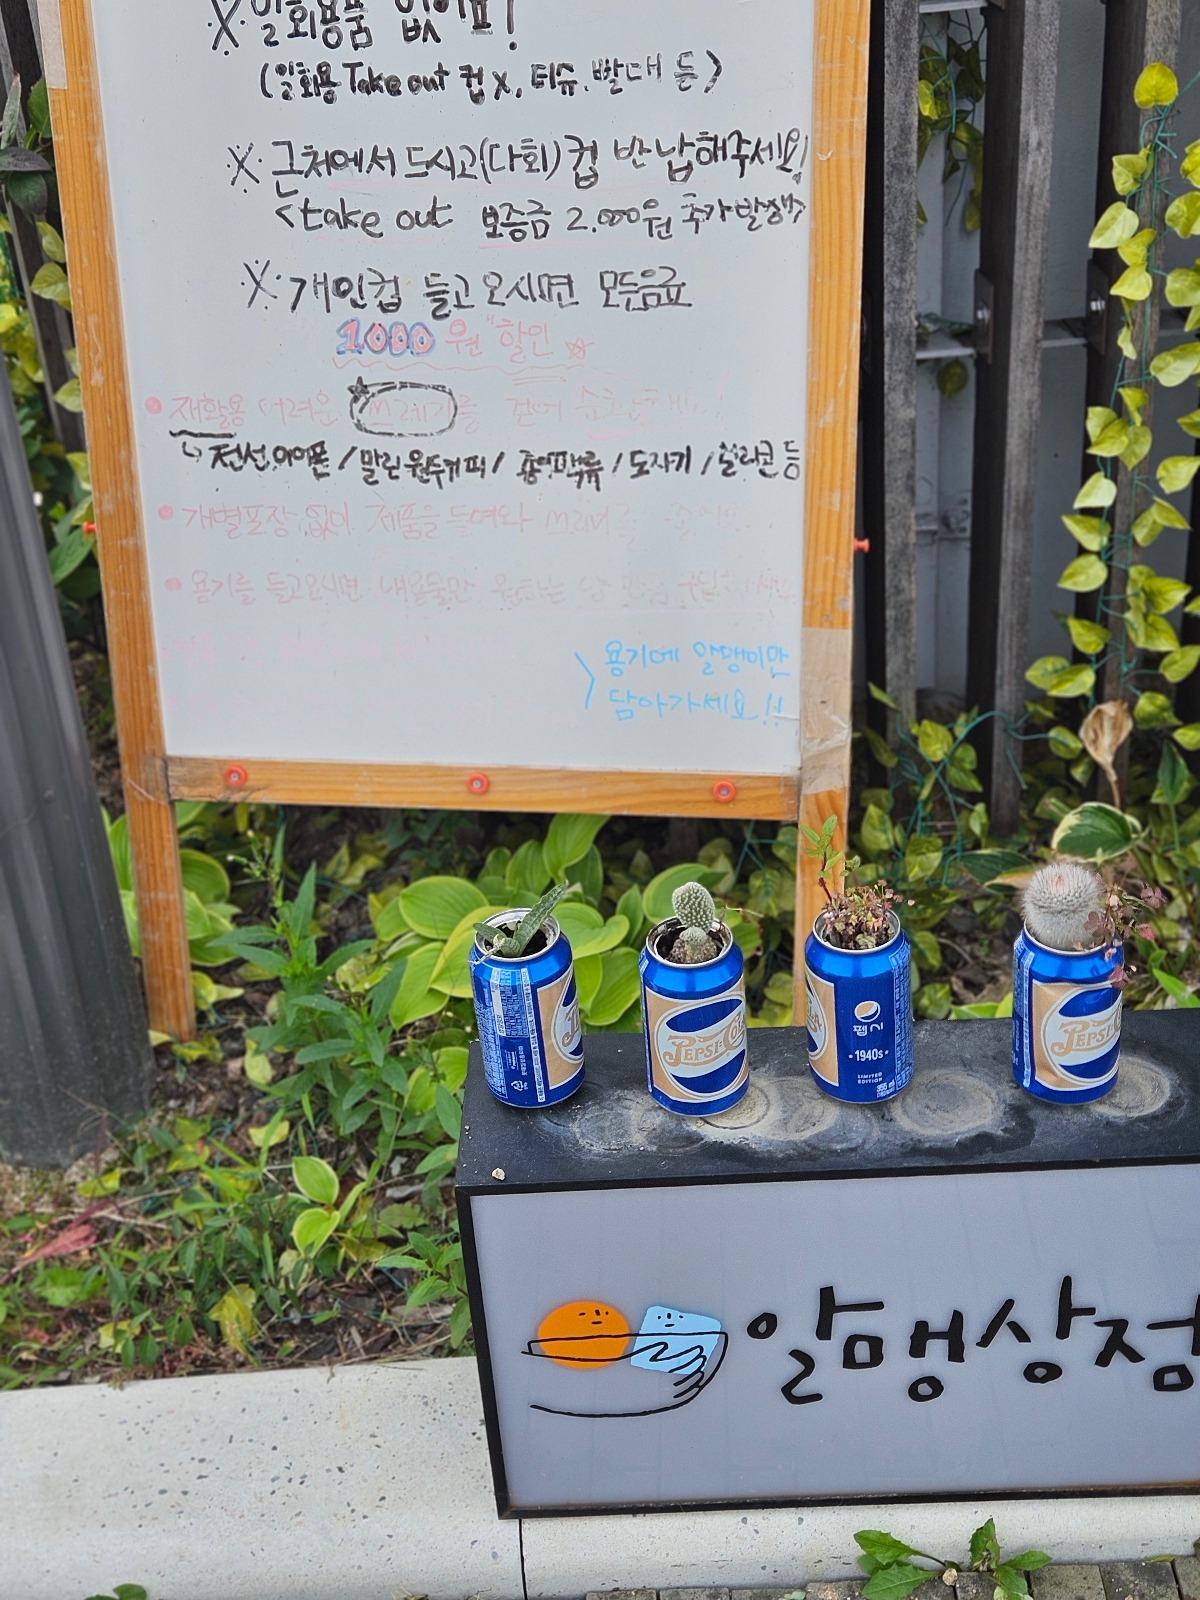 ※ 일회용품 없어요!
(일회용 Take out 컵 X, 티슈, 빨대 등)
※ 근처에서 드시고(다회) 컵 반납해주세요!
<take out 보증금 2.000원 추가발생>
※ 개인컵 들고 오시면 모든음료
1000원 할인
• 재활용 어려운 쓰레기를 걷어
↳ 전선, 이어폰 / 말린 원두커피 / 종이팩류 / 도자기 / 실리콘 등
• 개별포장 없이 제품을 들여와
• 용기를 들고오시면 내용물만 원하는
용기에 알맹이만
담아가세요!!
PEPSI-COLA
펩시
• 1940s •
LIMITED
EDITION
355 ml
PEPSI-CO
알맹상점